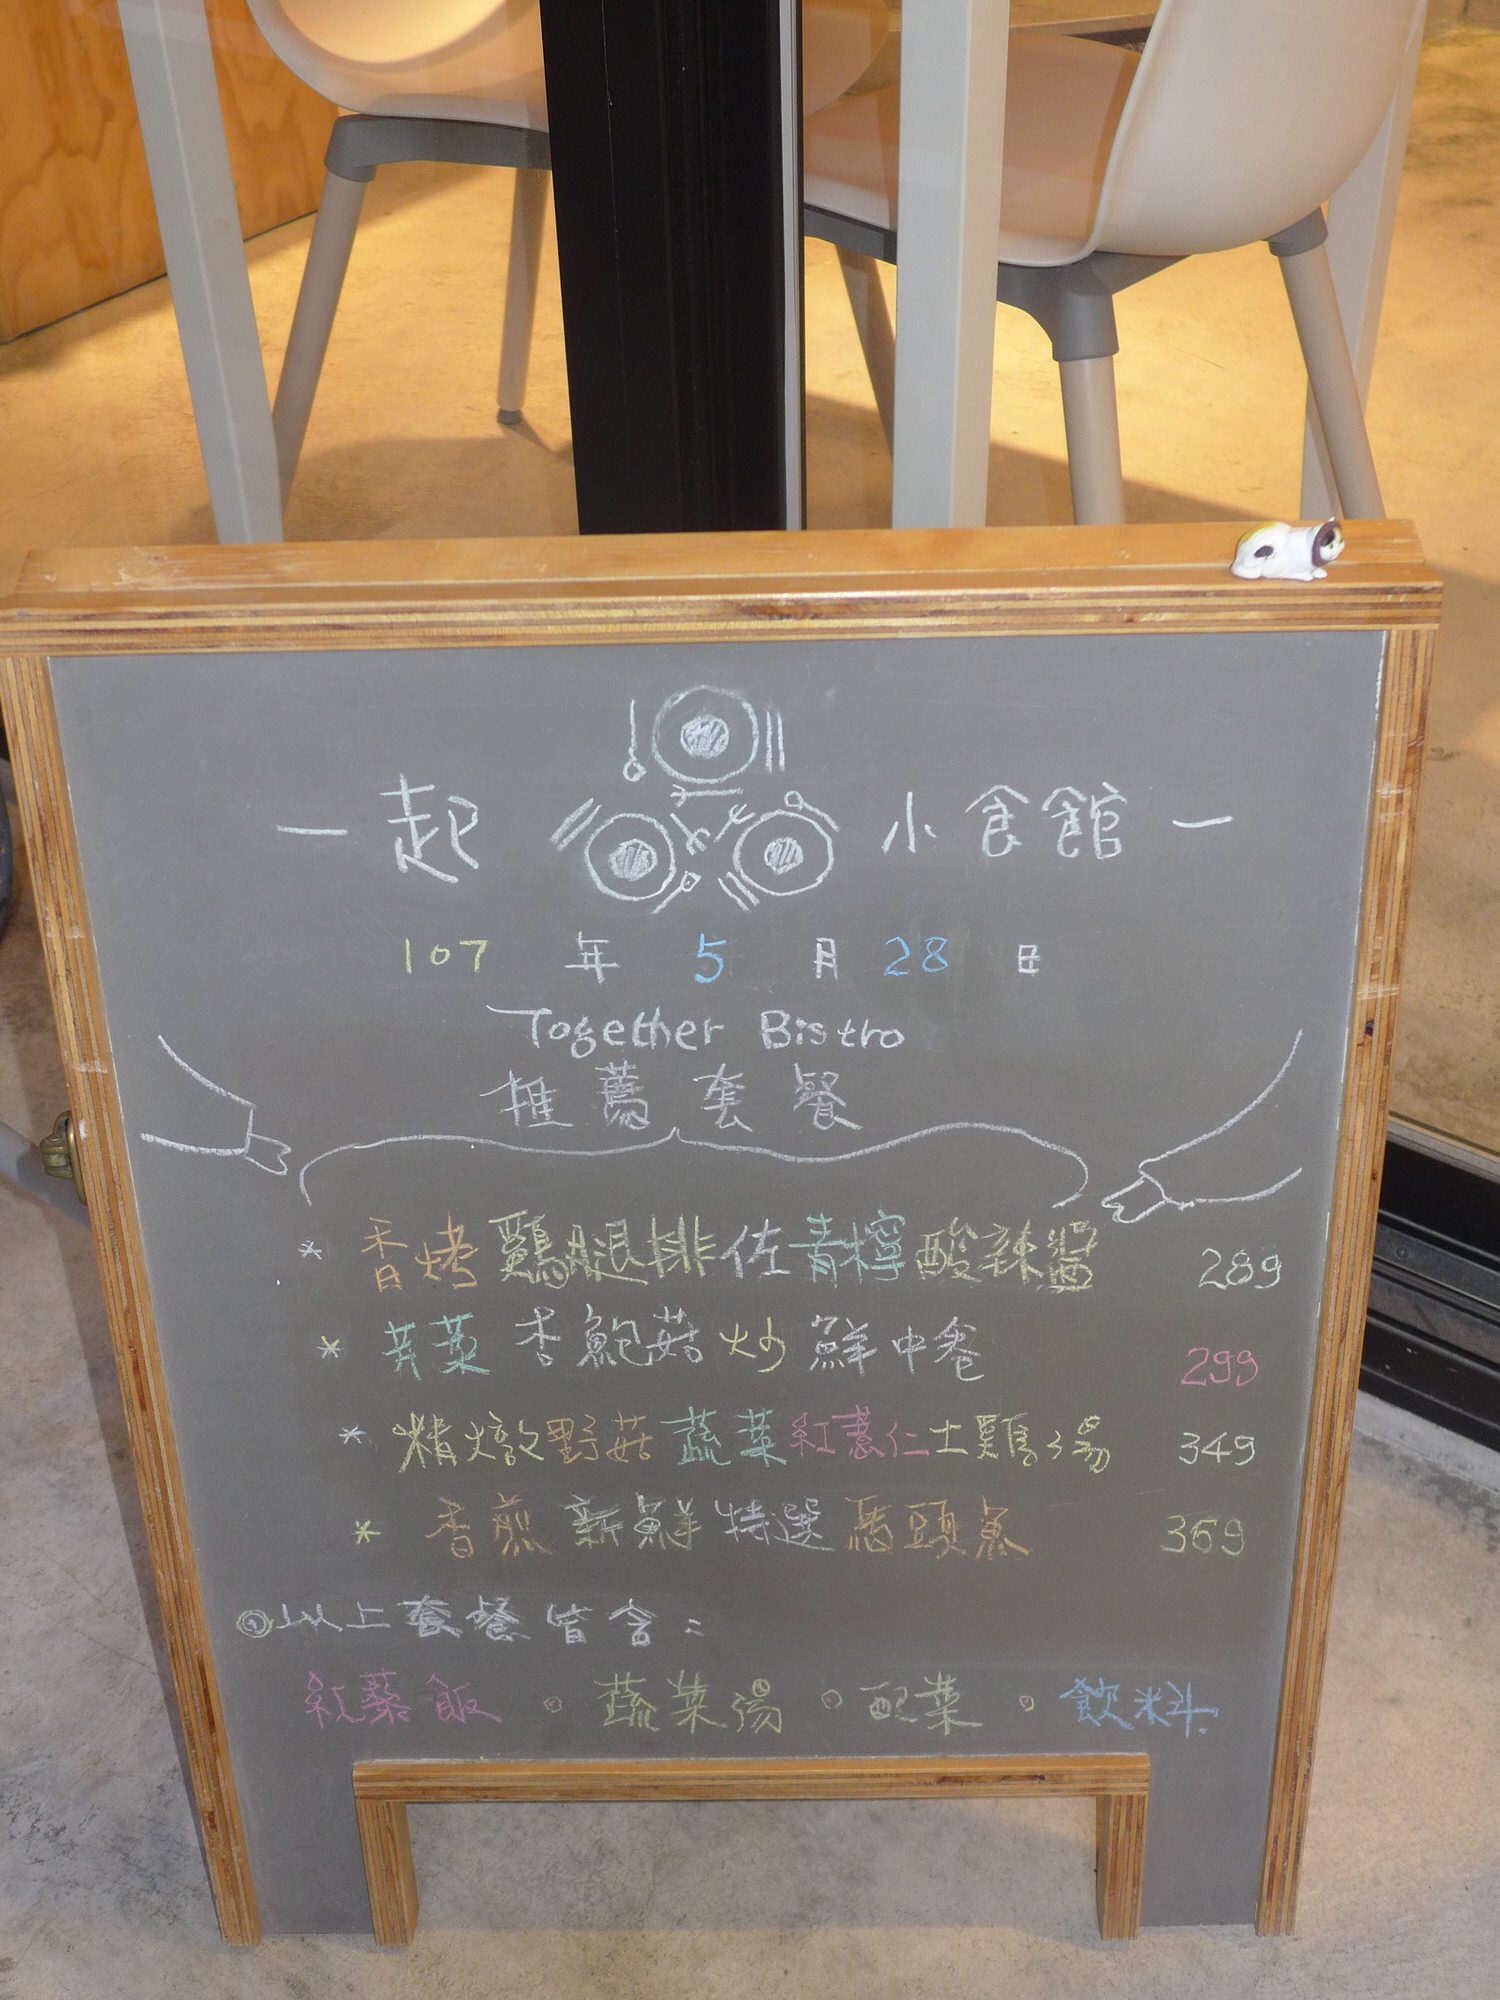 一起 小食館 一
107 年 5 月 28 日
Together Bistro
推薦套餐
* 香烤雞腿排佐青檸酸辣醬 289
* 芥菜杏鮑菇炒鮮中卷 299
* 精燉野菇蔬菜紅薏仁土雞湯 349
* 香煎新鮮特選馬頭魚 369
以上套餐皆含:
紅藜飯。蔬菜湯。配菜。飲料.